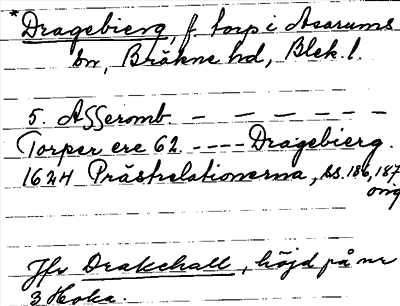 *Dragebierg, f. torp i Asarums
sn, Bräkne hd, Blek. l.
5. Asseromb. — — — — — —
Torper ere 62. ---- Dragebierg.
1624 Prästrelationerna, ss. 186, 187
orig
Jfr Drakehall, höjd på nr
3 Hoka.